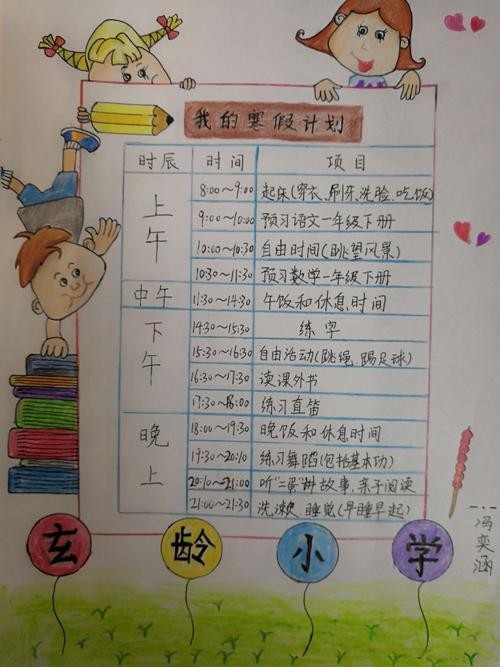 我的寒假计划
时辰 时间 项目
上午 8:00~9:00 起床(穿衣、刷牙、洗脸、吃饭)
9:00~10:00 预习语文一年级下册
10:00~10:30 自由时间(眺望风景)
10:30~11:30 预习数学一年级下册
中午 11:30~14:30 午饭和休息时间
下午 14:30~15:30 练字
15:30~16:30 自由活动(跳绳、踢足球)
16:30~17:30 读课外书
17:30~18:00 练习直笛
晚上 18:00~19:30 晚饭和休息时间
19:30~20:10 练习舞蹈(包括基本功)
20:10~21:00 听"二蛋"讲故事,亲子阅读
21:00~21:30 洗漱、睡觉(早睡早起)
玄龄小学
冯奕涵